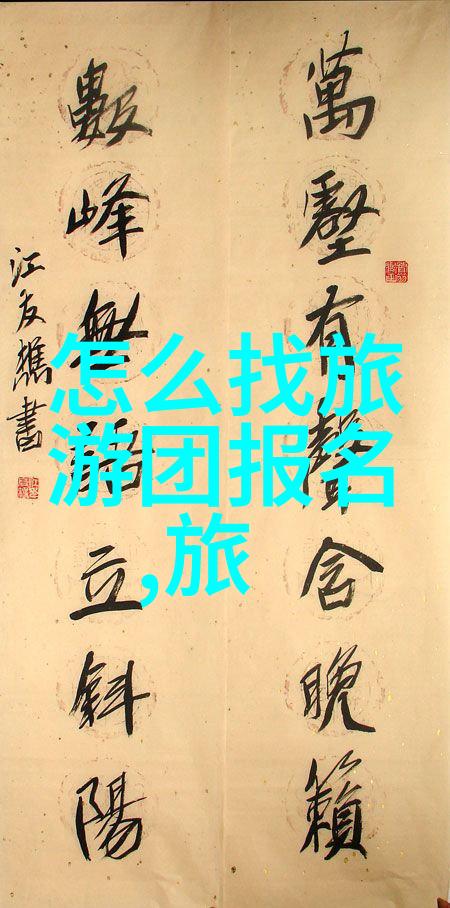 萬壑有聲含晚籟
數峰無語立斜陽
江友樵書
怎么找旅
游团报名
,旅